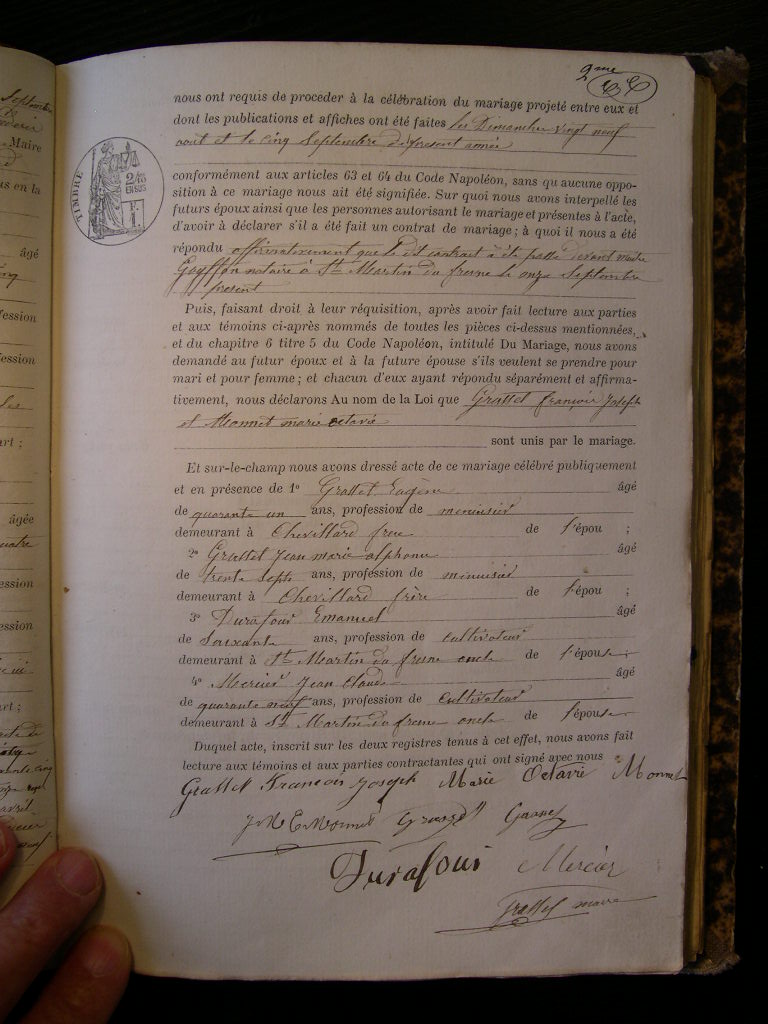 2me
nous ont requis de proceder à la célébration du mariage projeté entre eux et
dont les publications et affiches ont été faites les Dimanches vingt neuf
août et le cinq Septembre du présent année
TIMBRE
2/10
EN SUS
F.
1
conformément aux articles 63 et 64 du Code Napoléon, sans qu'aucune oppo-
sition à ce mariage nous ait été signifiée. Sur quoi nous avons interpellé les
futurs époux ainsi que les personnes autorisant le mariage et présentes à l'acte,
d'avoir à déclarer s'il a été fait un contrat de mariage ; à quoi il nous a été
répondu affirmativement que le dit contrat à été passé devant maitre
Goyffon notaire à St Martin du fresne le onze Septembre
présent
Puis, faisant droit à leur réquisition, après avoir fait lecture aux parties
et aux témoins ci-après nommés de toutes les pièces ci-dessus mentionnées,
et du chapitre 6 titre 5 du Code Napoléon, intitulé Du Mariage, nous avons
demandé au futur époux et à la future épouse s'ils veulent se prendre pour
mari et pour femme ; et chacun d'eux ayant répondu séparément et affirma-
tivement, nous déclarons Au nom de la Loi que Grattet françois Joseph
et Monnet marie octavie
sont unis par le mariage.
Et sur-le-champ nous avons dressé acte de ce mariage célébré publiquement
et en présence de 1º Grattet Eugène âgé
de quarante un ans, profession de menuisier
demeurant à Chevillard frere de l'épou ;
2º Grattet Jean marie alphonse âgé
de trente sept ans, profession de menuisier
demeurant à Chevillard frère de l'épou ;
3º Durafour Emanuel âgé
de Soixante ans, profession de cultivateur
demeurant à St Martin du fresne oncle de l'épouse ;
4º Mercier Jean Claude âgé
de quarante neuf ans, profession de Cultivateur
demeurant à St Martin du fresne oncle de l'épouse
Duquel acte, inscrit sur les deux registres tenus à cet effet, nous avons fait
lecture aux témoins et aux parties contractantes qui ont signé avec nous
Grattet François Joseph Marie Octavie Monnet
J M E Monnet
Durafour Mercier
Grattet maire